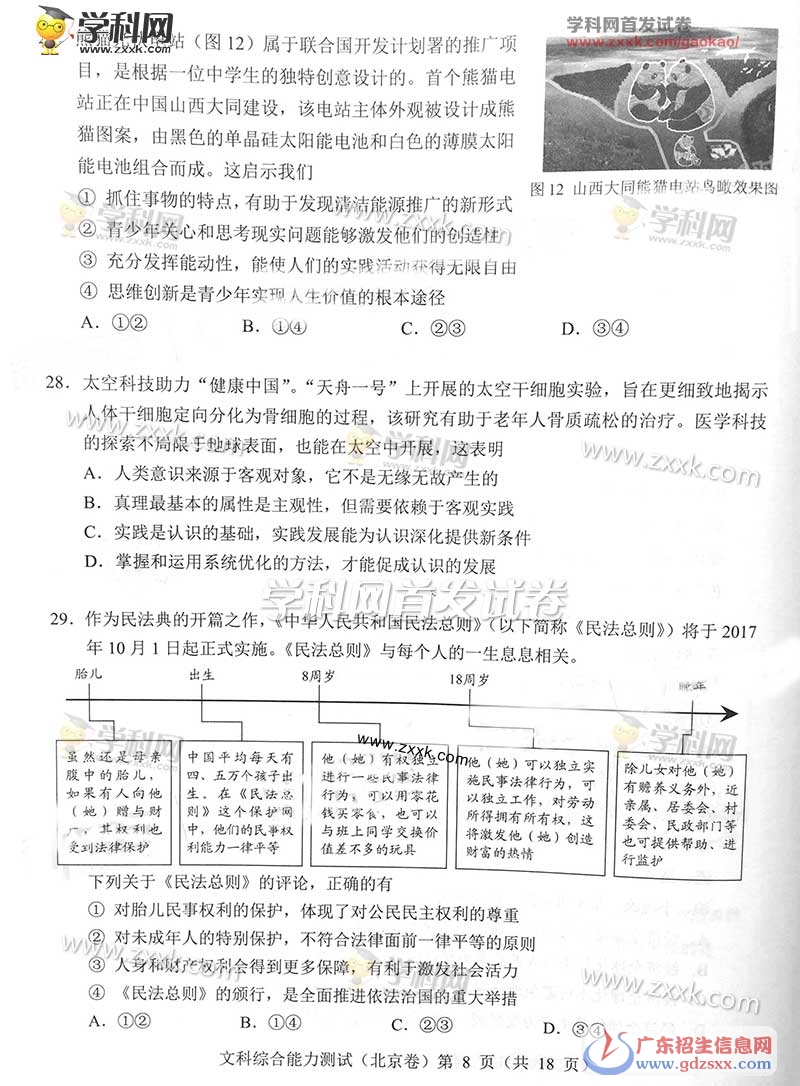 学科网
www.zxxk.com
学科网首发试卷
www.zxxk.com/gaokao/
站（图 12）属于联合国开发计划署的推广项
目，是根据一位中学生的独特创意设计的。首个熊猫电
站正在中国山西大同建设，该电站主体外观被设计成熊
猫图案，由黑色的单晶硅太阳能电池和白色的薄膜太阳
能电池组合而成。这启示我们
图 12 山西大同熊猫电站鸟瞰效果图
① 抓住事物的特点，有助于发现清洁能源推广的新形式
② 青少年关心和思考现实问题能够激发他们的创造性
③ 充分发挥能动性，能使人们的实践活动获得无限自由
④ 思维创新是青少年实现人生价值的根本途径
A．①② B．①④ C．②③ D．③④
28．太空科技助力“健康中国”。“天舟一号”上开展的太空干细胞实验，旨在更细致地揭示
人体干细胞定向分化为骨细胞的过程，该研究有助于老年人骨质疏松的治疗。医学科技
的探索不局限于地球表面，也能在太空中开展，这表明
A．人类意识来源于客观对象，它不是无缘无故产生的
B．真理最基本的属性是主观性，但需要依赖于客观实践
C．实践是认识的基础，实践发展能为认识深化提供新条件
D．掌握和运用系统优化的方法，才能促成认识的发展
学科网首发试卷
29．作为民法典的开篇之作，《中华人民共和国民法总则》（以下简称《民法总则》）将于 2017
年 10 月 1 日起正式实施。《民法总则》与每个人的一生息息相关。
胎儿 出生 8周岁 18周岁 晚年
虽然还是母亲
腹中的胎儿，
如果有人向他
（她）赠与财
产，其权利也
受到法律保护
中国平均每天有
四、五万个孩子出
生。在《民法总
则》这个保护网
中，他们的民事权
利能力一律平等
他（她）有权独立
进行一些民事法律
行为，可以用零花
钱买零食，也可以
与班上同学交换价
值差不多的玩具
他（她）可以独立实
施民事法律行为，可
以独立工作，对劳动
所得拥有所有权，这
将激发他（她）创造
财富的热情
除儿女对他（她）
有赡养义务外，近
亲属、居委会、村
委会、民政部门等
也可提供帮助、进
行监护
www.zxxk.com
下列关于《民法总则》的评论，正确的有
① 对胎儿民事权利的保护，体现了对公民民主权利的尊重
② 对未成年人的特别保护，不符合法律面前一律平等的原则
③ 人身和财产权利会得到更多保障，有利于激发社会活力
④ 《民法总则》的颁行，是全面推进依法治国的重大举措
A．①② B．①④ C．②③ D．③④
文科综合能力测试（北京卷）第 8 页（共 18 页）
广东招生信息网
www.gdzsxx.com